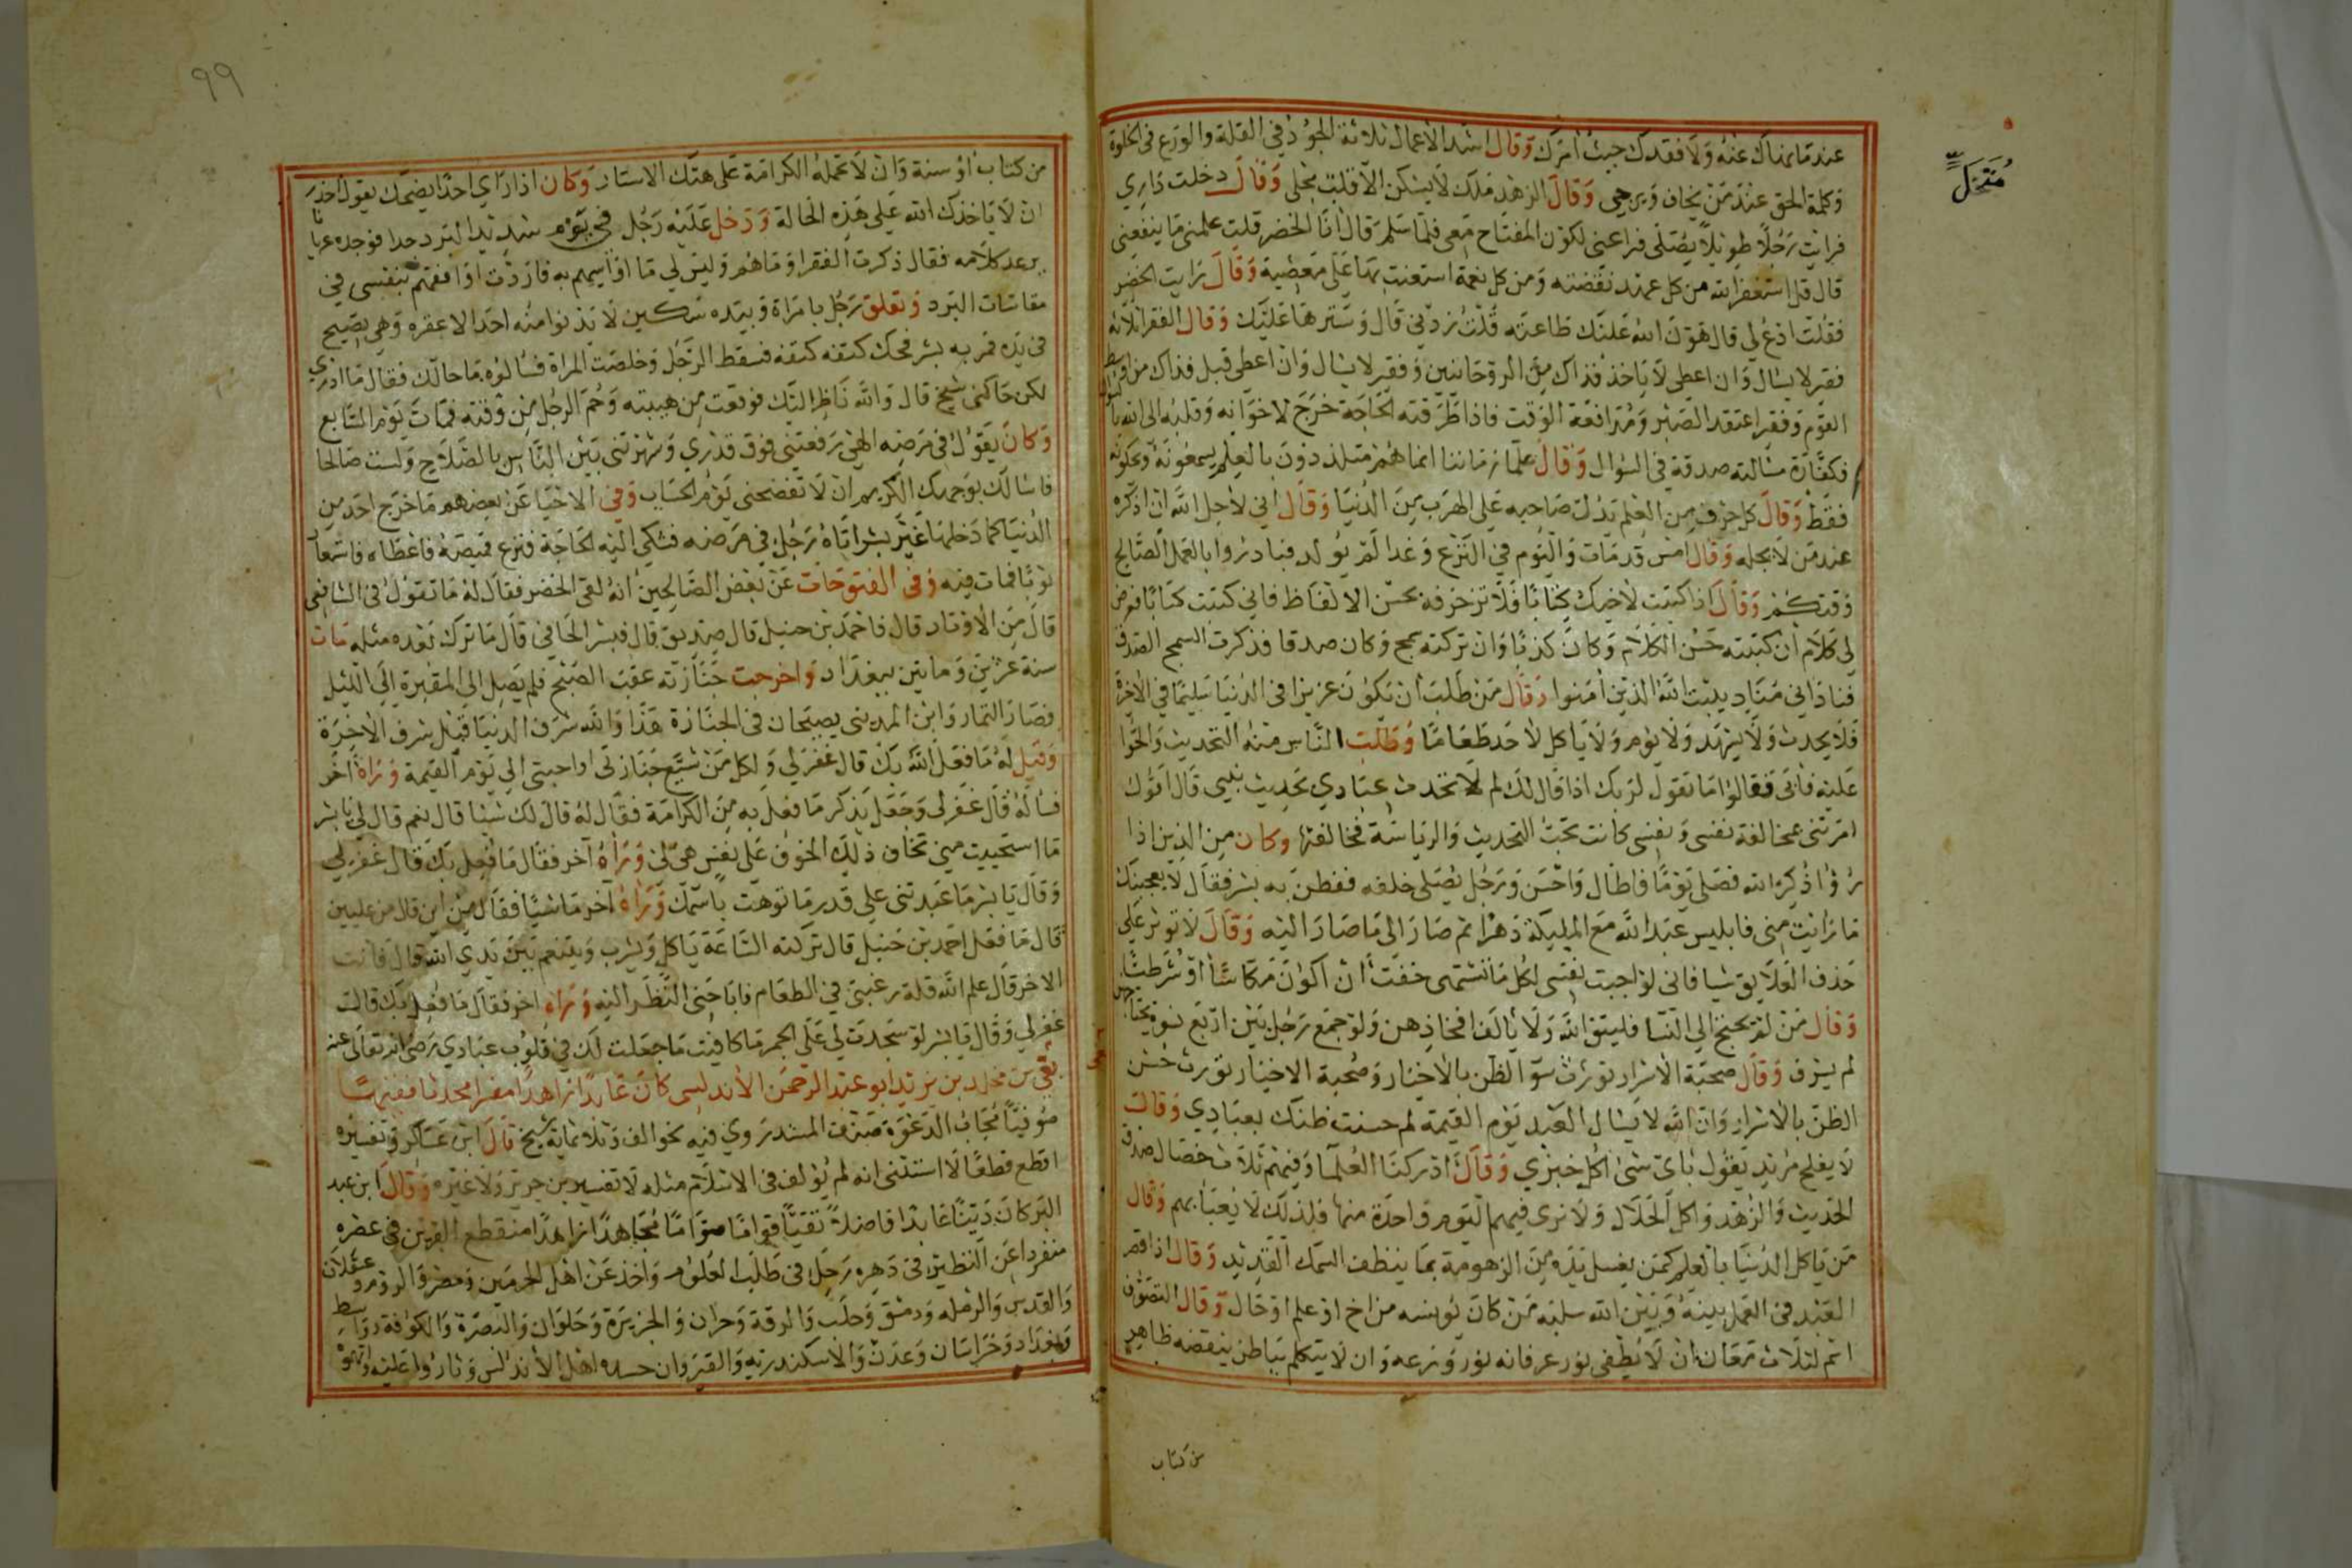 عندما نهاك عنه ولا فقدك حيث أمرك وقال اشد الاعمال ثلاثة الجود في القلة والورع في الخلوة
وكلمة الحق عند من يخاف ويرجى وقال الزهد ملك لا يسكن الا قلب مخلى وقال دخلت داري
متخل
فرايت رجلا طويلا يصلي فراعني لكون المفتاح معي فلما سلم قال انا الخضر قلت علمني ما ينفعني
قال قل استغفر الله من كل عهد نقضته ومن كل نعمة استعنت بها على معصية وقال رايت الخضر
فقلت ادع لي قال هون الله عليك طاعته قلت زدني قال وسترها عليك وقال الفقرا ثلاثة
فقير لا يسال وان اعطى لا ياخذ فذاك من الروحانيين وفقير لا يسال وان اعطى قبل فذاك من اوسط
القوم وفقير اعتقد الصبر ومدافعة الوقت فاذا طرقته الحاجة خرج لاخوانه وقلبه الى الله
فكفارة مسالته صدقة في السوال وقال علما زماننا انما هم متلذذون بالعلم يسمعونه ويحكونه
فقط وقال كل حرف من العلم يدل صاحبه على الهرب من الدنيا وقال اني لاجل الله ان اذكره
عند من لا يجله وقال امس قد مات واليوم في النزع وغدا لم يولد فبادروا بالعمل الصالح
وقال اذا كتبت لاخيك كتابا فلا تزخرفه بحسن الالفاظ فاني كتبت كتابا فعرض
لي كلام ان كتبته حسن الكلام وكان كذبا وان تركته سمج وكان صدقا فذكرت السمج الصدق
فناداني مناد يثبت الله الذين امنوا وقال من طلب ان تكون عزيزا في الدنيا سليما في الاخرة
فلا يحدث ولا يشهد ولا يوم ولا ياكل لاحد طعاما وطلب الناس منه التحديث والحوا
عليه فابى فقالوا ما تقول لربك اذا قال لك لم لا تحدث عبادي بحديث نبيي قال اقول
امرتني بمخالفة نفسي ونفسي كانت تحب التحديث والرياسة فخالفتها وكان من الذين اذا
رؤا ذكر الله فصلى يوما فاطال واحسن ورجل يصلي خلفه ففطن به بشر فقال لا يعجبنك
ما رايت مني فابليس عبد الله مع المليكة دهرا ثم صار الى ما صار اليه وقال لا توثر على
حذف العلايق شيا فاني لو اجبت نفسي لكل ما تشتهي خفت ان اكون مكاسا او شرطيا
وقال من لم يحتج الى النسا فليتق الله ولا يالف افخاذهن ولو جمع رجل بين اربع نسوة يحتاجهن
لم يسرف وقال صحبة الاشرار تورث سوء الظن بالاخيار وصحبة الاخيار تورث حسن
الظن بالاشرار وان الله لا يسال العبد يوم القيمة لم حسنت ظنك بعبادي وقال
لا يفلح مريد يقول باي شي اكل خبزي وقال ادركنا العلما وفيهم ثلاث خصال صدق
الحديث والزهد واكل الحلال ولا نرى فيهم اليوم واحدة منها فلذلك لا يعبا بهم وقال
من ياكل الدنيا بالعلم كمن يغسل يده من الزهومة بما ينظف السمك القديد وقال اذا قصر
العبد في العمل بينه وبين الله سلبه من كان يونسه من اخ او علم او حال وقال التصوف
اسم لثلاث معان ان لا يطفى نور عرفانه نور ورعه وان لا يتكلم بباطن ينقضه ظاهر
من كتاب
٩٩
من كتاب او سنة وان لا تحمله الكرامة على هتك الاستار وكان اذا راى احدا يضحك يقول احذر
ان لا ياخذك الله على هذه الحالة ودخل عليه رجل في يوم شديد البرد جدا فوجده عريانا
يرعد كلامه فقال ذكرت الفقرا وما هم وليس لي ما اواسيهم به فاردت اوافقهم بنفسي في
مقاسات البرد وتعلق رجل بامراة وبيده سكين لا يدنوا منه احد الا عقره وهي تصيح
في يده فمر به بشر فحك كتفه كتفه فسقط الرجل وخلصت المراة فسالوه ما حالك فقال ما ادري
لكن حاكني شيخ قال والله ناظر اليك فوقعت من هيبته وحم الرجل من وقته فمات يوم السابع
وكان يقول في مرضه الهي رفعتني فوق قدري وشهرتني بين الناس بالصلاح ولست صالحا
فاسالك بوجهك الكريم ان لا تفضحني يوم الحساب وفي الاحيا عن بعضهم ما خرج احد من
الدنيا كما دخلها غير بشر اتاه رجل في مرضه فشكى اليه الحاجة فنزع قميصه فاعطاه فاستعار
ثوبا فمات فيه وفي الفتوحات عن بعض الصالحين انه لقي الخضر فقال له ما تقول في الشافعي
قال من الاوتاد قال فاحمد بن حنبل قال صديق قال فبشر الحافي قال ما ترك بعده مثله مات
سنة عشرين ومايتين ببغداد واخرجت جنازته عقب الصبح فلم يصل الى المقبرة الى الليل
فصار التمار وابن المديني يصيحان في الجنازة هذا والله شرف الدنيا قبل شرف الاخرة
وقيل له ما فعل الله بك قال غفر لي ولكل من شيع جنازتي او احبني الى يوم القيمة وراه اخر
فساله قال غفر لي وجعل يذكر ما فعل به من الكرامة فقال له قال لك شيئا قال نعم قال لي يا بشر
ما استحييت مني تخاف ذلك الخوف على نفس هي لي وراه آخر فقال ما فعل بك قال غفر لي
وقال يا بشر ما عبدتني على قدر ما نوهت باسمك وراه آخر ماشيا فقال من اين قال من عليين
قال ما فعل احمد بن حنبل قال تركته الساعة ياكل ويشرب ويتنعم بين يدي الله قال فانت
الاخر قال علم الله قلة رغبتي في الطعام فاباحني النظر اليه وراه اخر فقال ما فعل بك قالت
غفر لي وقال يا بشر لو سجدت لي على الجمر ما كافيت ما جعلت لك في قلوب عبادي رضي الله تعالى عنه
بقي بن مخلد بن يزيد ابو عبد الرحمن الاندلسي كان عابدا زاهدا مفسرا محدثا
مجاب الدعوة صنف المسند روي فيه نحو الف وثلاثمائة شيخ قال ابن عساكر وتفسيره
اقطع قطعا لا استثني انه لم يولف في الاسلام مثله لا تفسير بن جرير ولا غيره وقال ابن عبد
البر كان دينا عابدا فاضلا تقيا قواما صواما مجاهدا زاهدا منقطع القرين في عصره
منفردا عن النظير في دهره رحل في طلب العلوم واخذ عن اهل الحرمين ومصر والروم وعسقلان
والقدس والرمله ودمشق وحلب والرقة وحران والجزيرة وحلوان والبصرة والكوفة وواسط
وبغداد وخراسان وعدن والاسكندرية والقيروان حسده اهل الاندلس وثاروا عليه